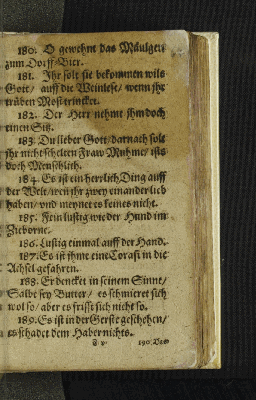 180. O gewehnt das Mäulgen
zum Dorff/Bier.
181. Ihr solt sie bekommen wils
Gott/ auff die Weinlese/ wenn ihr
trüben Most trincket.
182. Der Herr nehmt ihm doch
einen Sitz.
183. Du lieber Gott/ darnach solt
ihr nicht schelten Fraw Muhme/ ists
doch Menschlich.
184. Es ist ein herrlich Ding auff
der Welt/ wen ihr zwey einander lieb
haben/ und meynet es keines nicht.
185. Fein lustig wie der Hund im
Zieborne.
186. Lustig einmal auff der Hand.
187. Es ist ihme eine Corasi in die
Achsel gefahren.
188. Er dencket in seinem Sinne/
Salbe sey Butter/ es schmieret sich
wol so/ aber es frisst sich nicht so.
189. Es ist in der Gerste geschehen/
es schadet dem Haber nichts.
190. Das